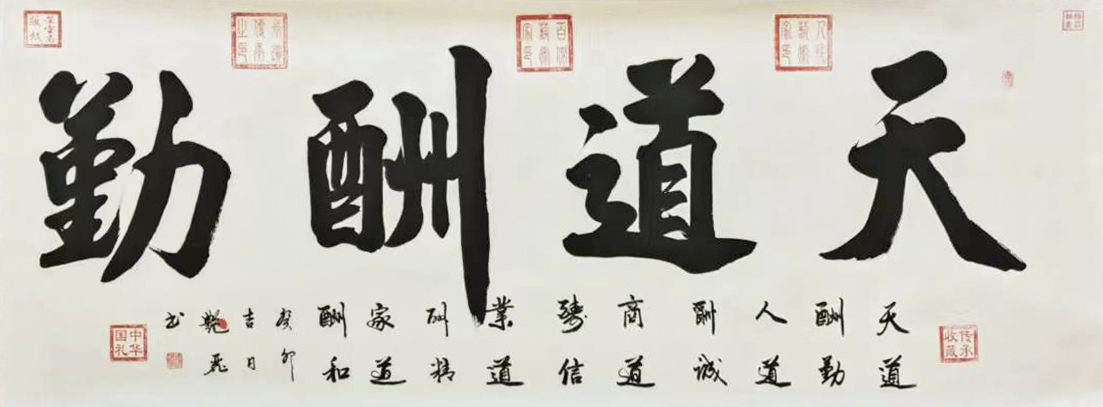 天道酬勤
天道
酬勤
人道
酬诚
商道
酬信
業道
酬精
家道
酬和
癸卯
吉日
书
传承
收藏
中华
国礼